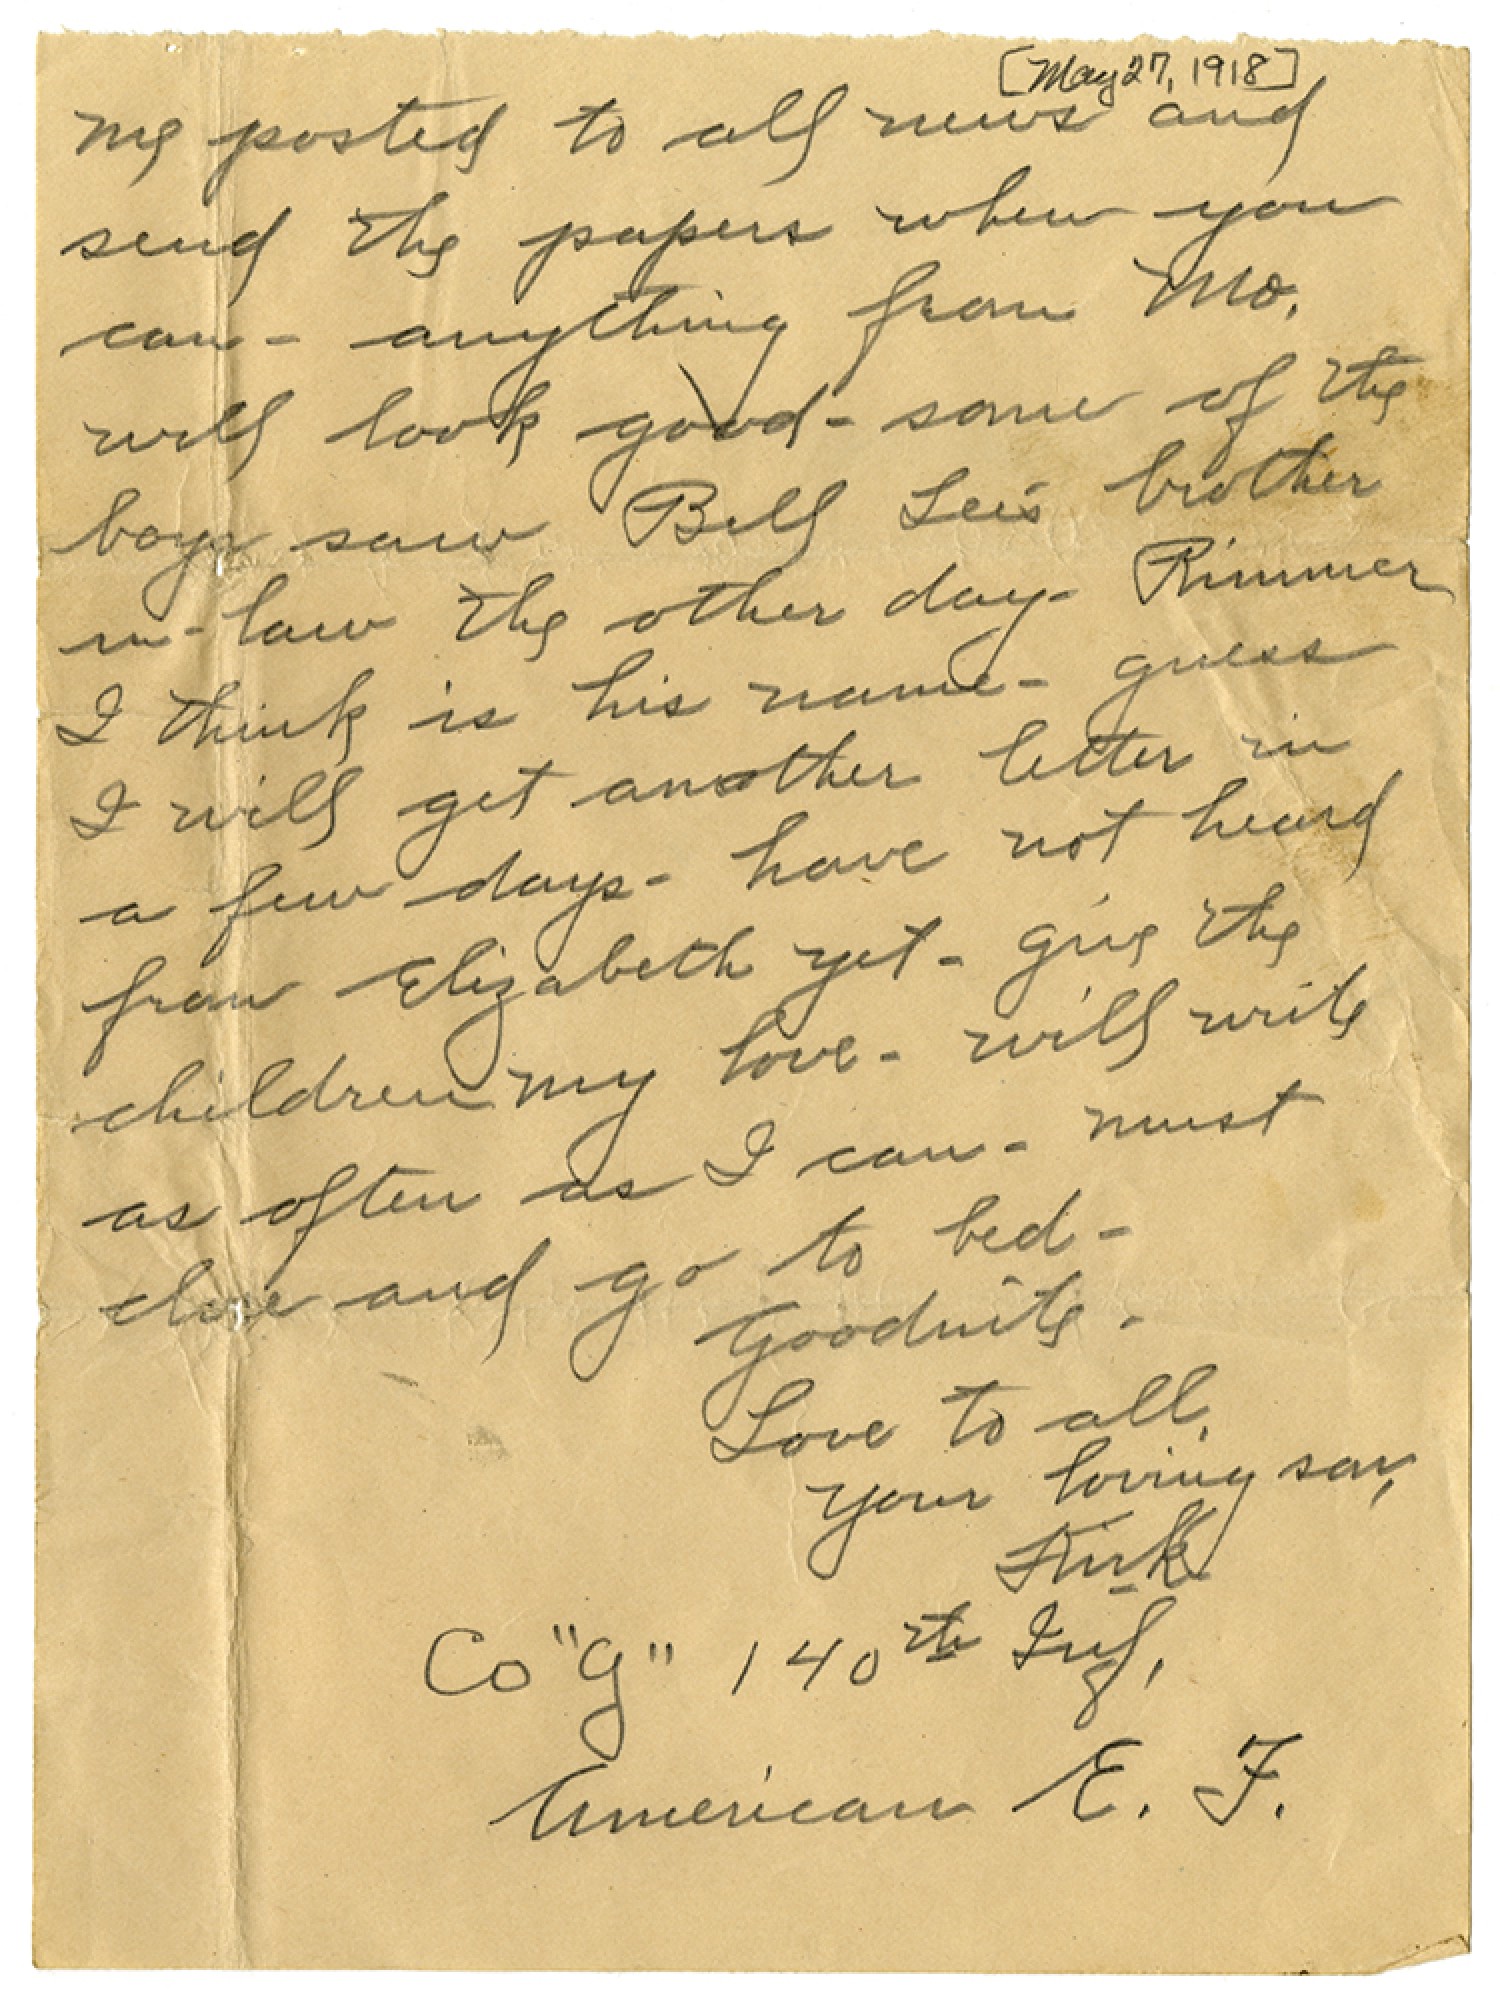 [May 27, 1918]
me posted to all news and
send the papers when you
can - anything from Mo.
will look good - some of the
boys saw Bill Lee's brother
in-law the other day - Rimmer
I think is his name - guess
I will get another letter in
a few days - have not heard
from Elizabeth yet - give the
children my love - will write
as often as I can - must
close and go to bed -
Goodnite -
Love to all,
Your loving son,
Kirk
Co "G" 140th Inf,
American E. F.